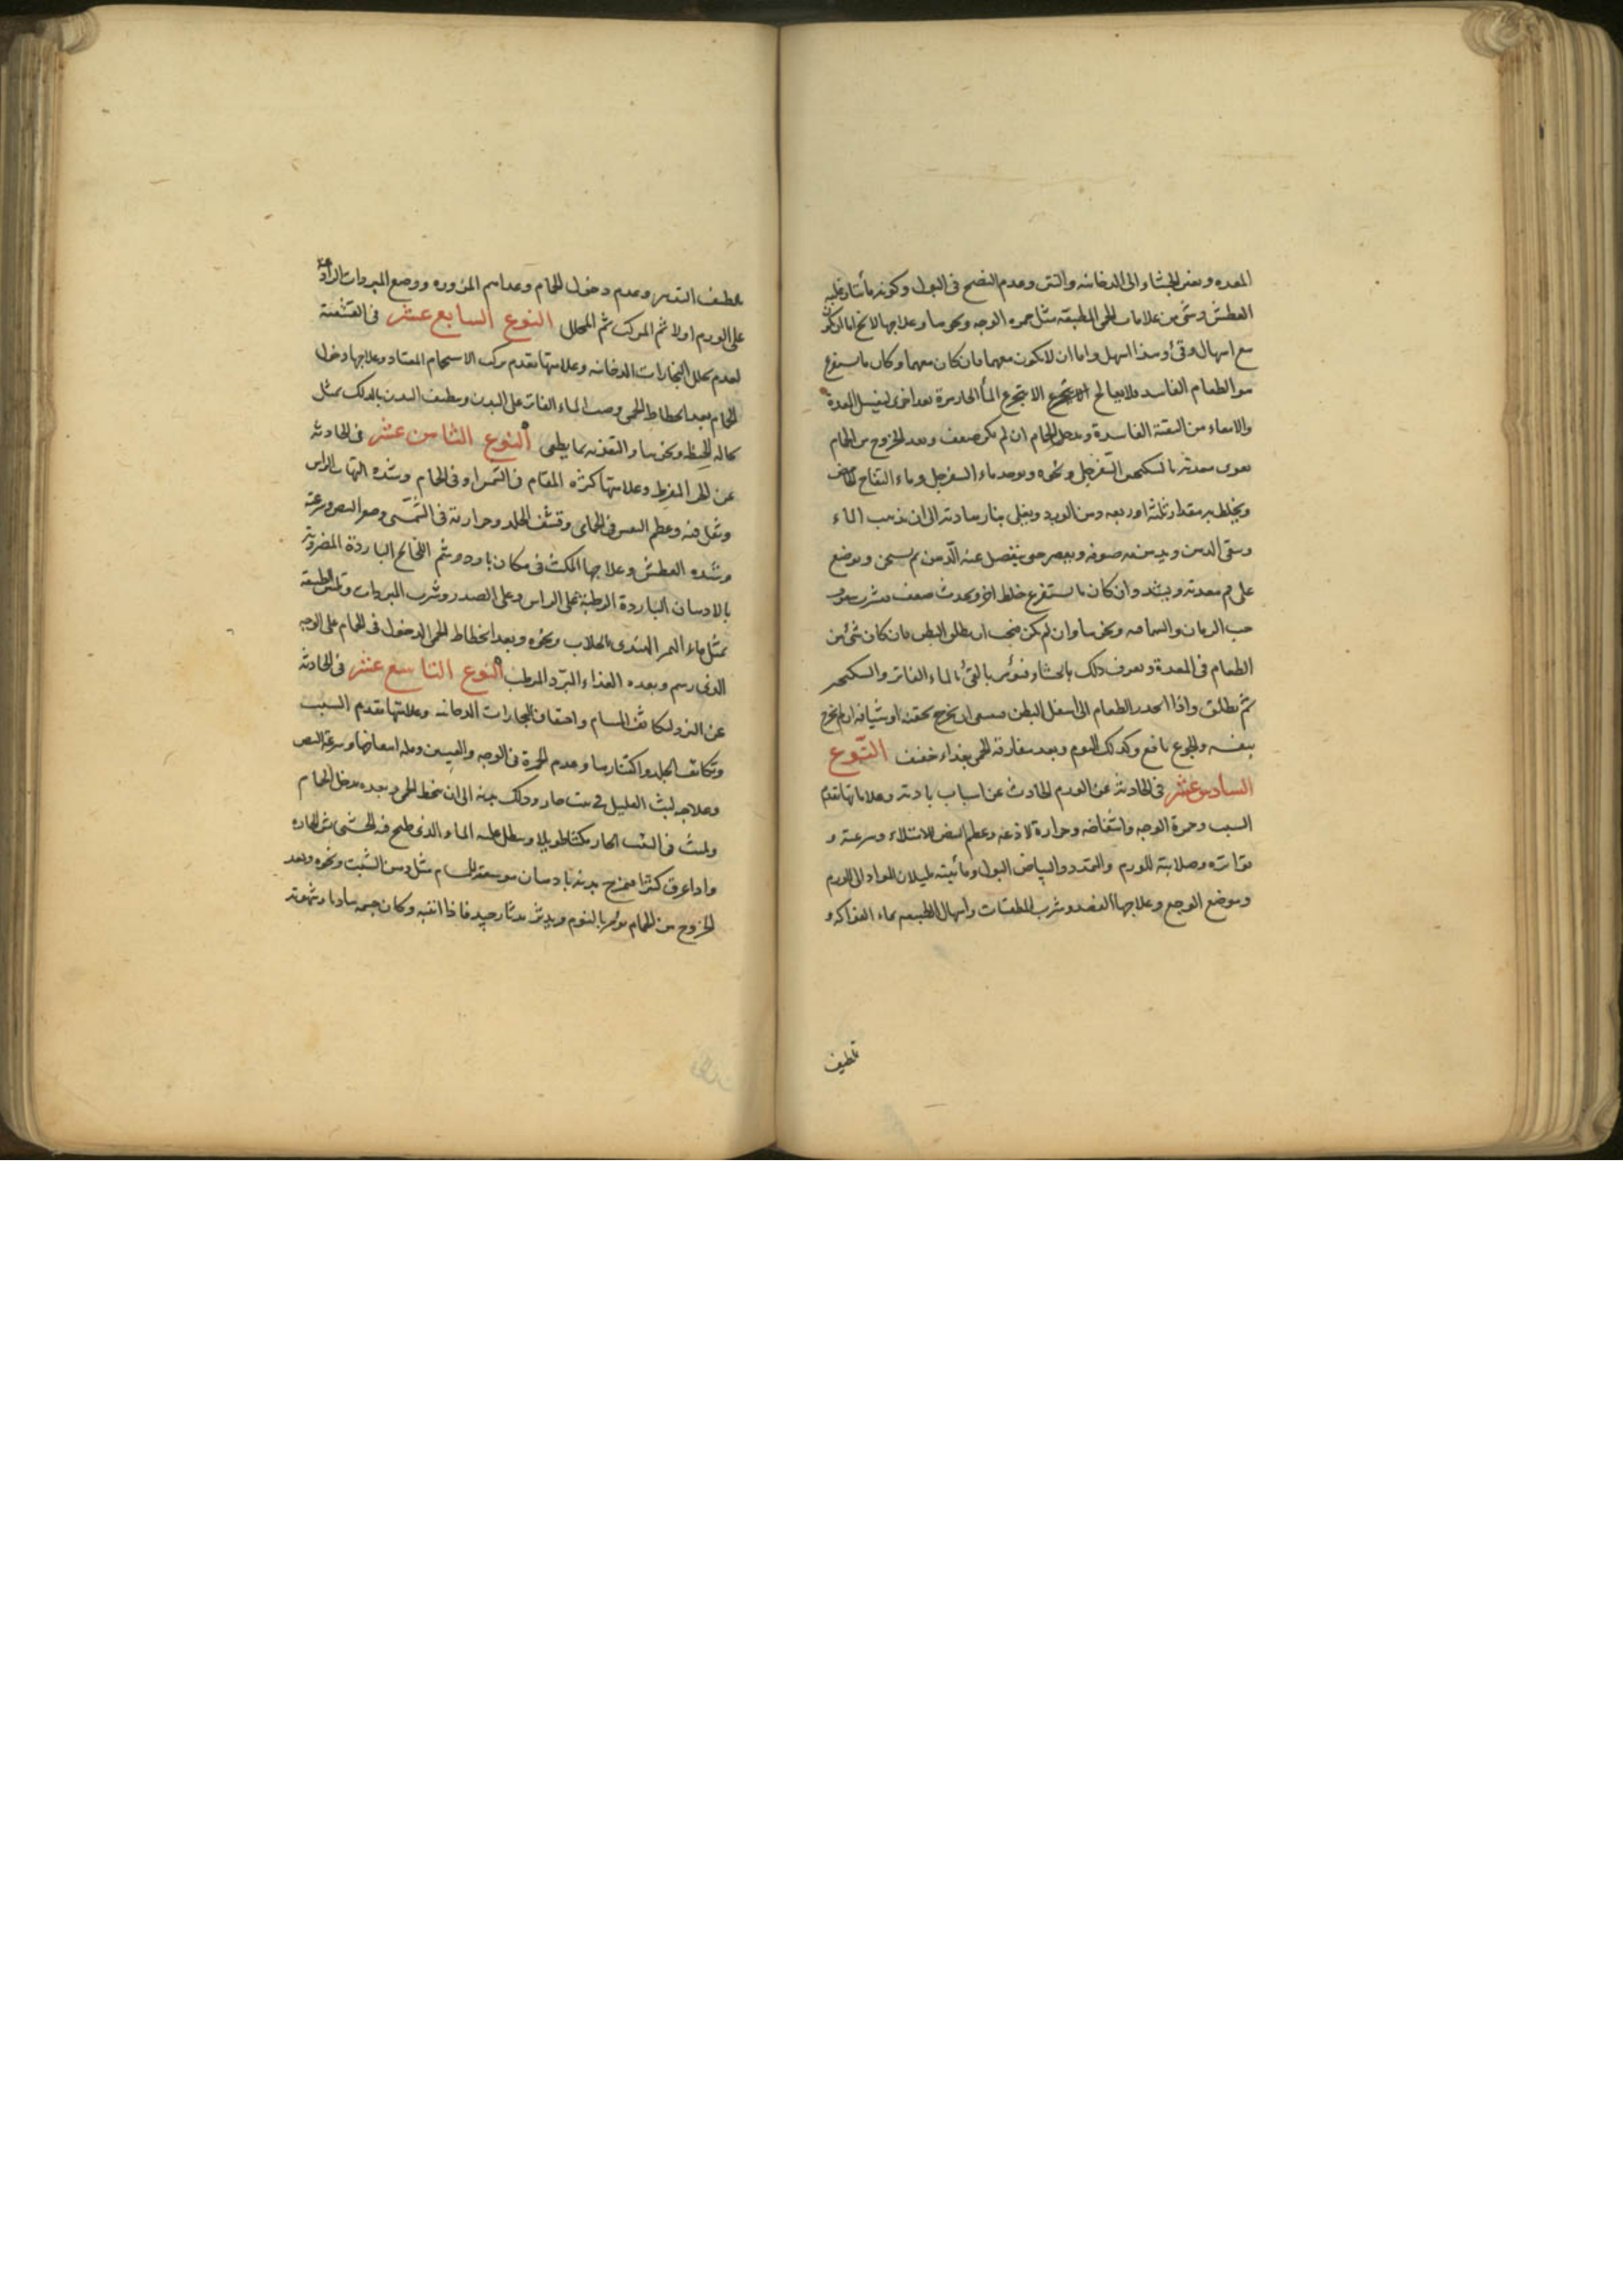 المعده وبعض الجشاء الى الدخانيه والنتن وعدم النضج فى البول وكونه مائيا وغلبه
العطش وشئ من علامات الحمى المطبقه مثل حمره الوجه ونحوها وعلاجها لا يخ اما ان يكون
مع اسهال وقئ وهذا اسهل واما ان لا يكون معهما فان كان معهما وكان ما يستفرغ
هو الطعام الفاسد فلا يعالج الا بتجرع الماء الحار مرة بعد اخرى لغسل المعدة
والامعاء من البقية الفاسدة ويدخل الحمام ان لم يكن ضعف وبعد الخروج من الحمام
يقوى معدته بالسكنجبين السفرجلى ونحوه ويوخذ ماء السفرجل وماء التفاح الحامض
ويخلط به مقدار ثلثه او ربعه دهن الورد ويغلى بنار هادئه الى ان يذهب الماء
ويبقى الدهن ويدهن به صوفه ويعصر حتى ينفصل عنه الدهن ثم يسخن ويوضع
على فم معدته ويشد وان كان ما يستفرغ خلط اخر ويحدث ضعف فشرب سفوف
حب الرمان والسماقيه ونحوها وان لم يكن فيجب ان يطلق البطن فان كان شئ من
الطعام فى المعدة ويعرف ذلك بالجشاء فيؤمر بالقئ بالماء الفاتر والسكنجبين
ثم يطلق واذا انحدر الطعام الى اسفل البطن فينبغى ان يخرج بحقنه او شيافه ان لم يخرج
بنفسه والجوع نافع وكذلك النوم وبعد مفارقه الحمى يغذاء خفيف النوع
السادس عشر فى الحادثه عن الورم الحادث عن اسباب باديه وعلاماتها تقدم
السبب وحمرة الوجه وانتفاخه وحرارة لاذعه وعظم النبض للامتلاء وسرعته و
تواتره وصلابته للورم والتمدد والبياض البول ومائيته لميلان المواد الى الورم
وموضع الوجع وعلاجها الفصد وشرب المطفئات واسهال الطبيعه بماء الفواكه و
تلطيف
تلطيف التدبير وعدم دخول الحمام وغذاءهم المزوره ووضع المبردات الرادعه
على الورم اولا ثم المركب ثم المحلل النوع السابع عشر فى القشفية
لعدم تحلل البخارات الدخانيه وعلامتها تقدم ترك الاستحمام المعتاد وعلاجها دخول
الحمام بعد انحطاط الحمى وصب الماء الفاتر على البدن وتنظيف البدن بالدلك بمثل
نخاله الحنطه ونحوها والتغذيه بما يطفى النوع الثامن عشر فى الحادثه
عن الحر المفرط وعلامتها كثره المقام فى الشمس او فى الحمام وشده التهاب الراس
وثقل فيه وعظم النفس فى الحمامى وقشف الجلد وحرارته فى الشمسى وصغر النبض وسرعته
وشده العطش وعلاجها المكث فى مكان بارد وشم اللخالخ الباردة المضروبه
بالادهان الباردة الرطبه على الراس وعلى الصدر وشرب المبردات وتليين الطبيعه
بمثل ماء التمر الهندى بالجلاب ونحوه وبعد انحطاط الحمى الدخول فى الحمام على الوجه
الذى رسم وبعده الغذاء المبرد المرطب النوع التاسع عشر فى الحادثه
عن البرد لتكاثف المسام واحتقان البخارات الدخانيه وعلامتها تقدم السبب
وتكاثف الجلد واكتنازها وعدم الحمرة فى الوجه والعينين وقله انتفاخها وسرعه النبض
وعلاجه لبث العليل فى بيت حار ودلك بدنه الى ان تنحط الحمى وبعده يدخل الحمام
ويلبث فى البيت الحار مكثا طويلا ويطل عليه الماء الذى طبخ فيه الحشايش الحاره
واذا عرق كثيرا فيمرخ بدنه بادهان موسعه للمسام مثل دهن الشبت ونحوه وبعد
الخروج من الحمام يؤمر بالنوم ويدثر بدثار جيد فاذا انتبه وكان جسمه هادئا وشهوته